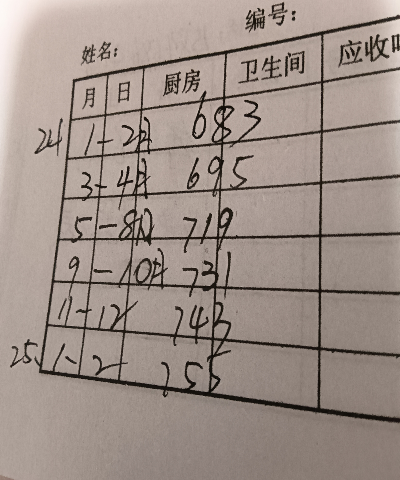 编号:
姓名:
月 日 厨房 卫生间 应收
24 1-2月 683
3-4月 695
5-8月 719
9-10月 731
11-12 743
25 1-2 755